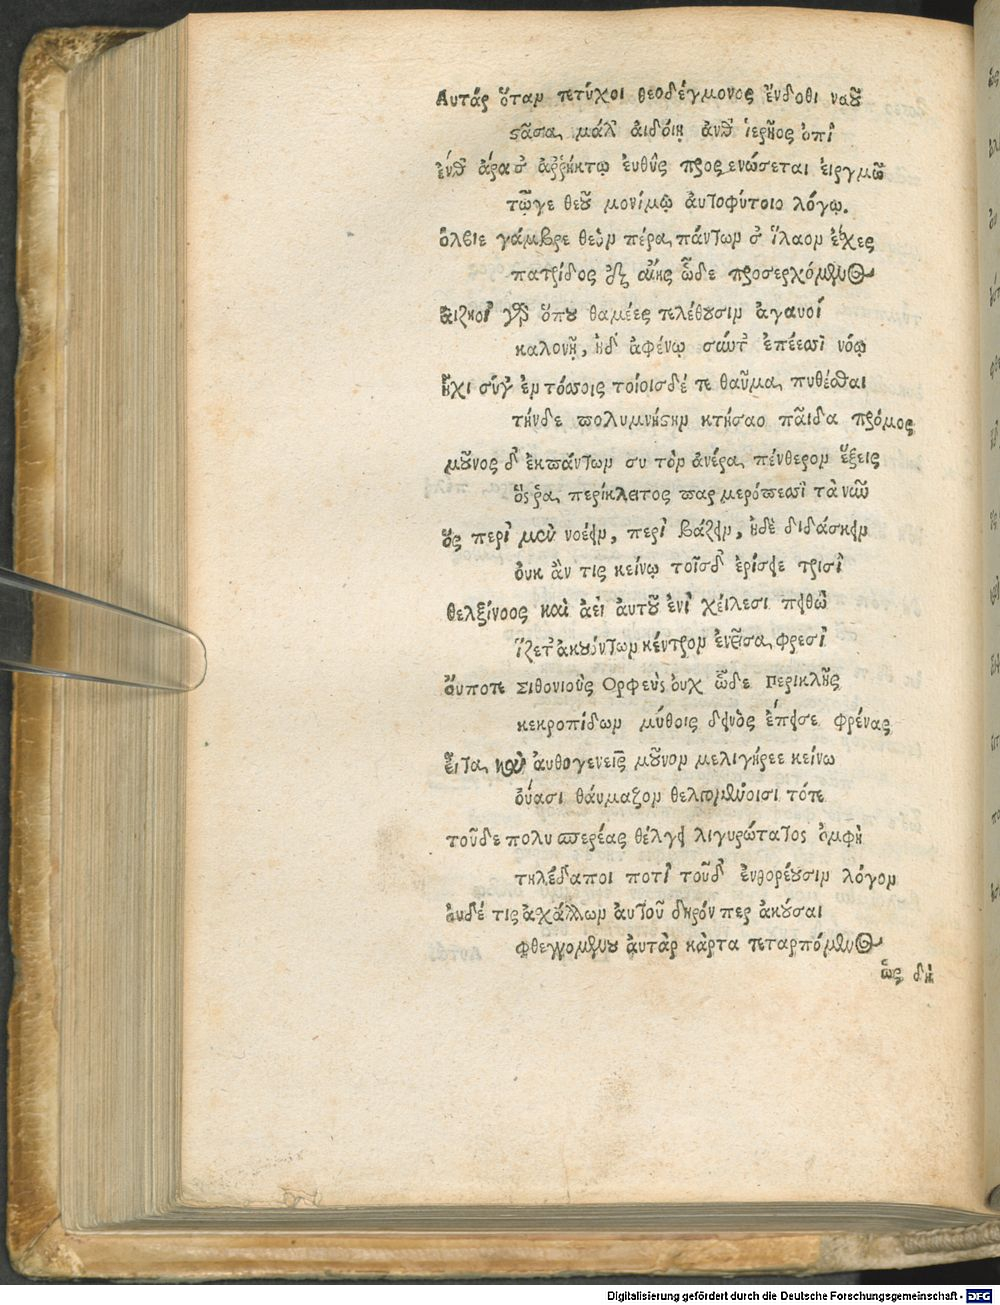 Αυτὰρ ὅταν τετύχοι θεοδέγμονος ἔνδοθι ναοῦ
στᾶσα, μάλ' ἀιδόιη ἀνθ' ἱερῆος ὀπὶ
ἐνθ' ἄρα σ' ἀῤῥήκτῳ ἐυθὺς προς ενώσεται ἑιργμῶ
τῷγε θεοῦ μονίμῳ ἀυτοφύτοιο λόγῳ.
ὄλβιε γάμβρε θεῶν πέρα, πάντων σ' ἵλαον ἔχες
πατρίδος ἐξ αἴης ὧδε προσερχόμενος
ἀιζηοὶ γὰρ ὅπου θαμέες τελέθουσιν ἀγαυοί
καλονῇ, ἠδ' ἀφένῳ σαύτ' ἐπέεσσι νόῳ
ἧχι σύγ' ἐν τόσσοις τοίοισδέ τε θαῦμα, πυθέσθαι
τήνδε πολυμνήστην κτήσαο παῖδα πρόμος
μοῦνος δ' ἐκπάντων συ τὸν ἀνέρα, πένθερον ἕξεις
ὅς ῥα, περίκλειτος παρ μερόπεσσι τὰ νῶ
ὃς περὶ μεν νοέειν, περὶ βάζειν, ἠδὲ διδάσκειν
ὀυκ ἄν τις κείνῳ τοῖσδ' ἐρίσειε τρισὶ
θελξίνοος καὶ ἀεὶ ἀυτοῦ ἐνὶ χείλεσι πειθὼ
ἵζετ' ἀκουόντων κέντρον ἐνεῖσα, φρεσὶ
ὄυποτε Σιθονιοὺς Ορφεὺς ὀυχ ὧδε Περικλῆς
κεκροπίδων μύθοις δεινὸς ἔπεισε φρένας
ἐῖτα, καὶ ἀυθογενεῖς μοῦνον μελιγήρεε κείνω
ὀύασι θάυμαζον θελπομένοισι τότε
τοῦδε πολυ σπερέας θέλγει λιγυρώτατος ὀμφὴ
τηλέδαποι ποτὶ τοῦδ' ἐνθορέουσιν λόγον
ὀυδέ τις ἀχάλλων ἀυτοῦ δηρόν περ ἀκούσαι
φθεγγομένου ἀυτὰρ κάρτα τεταρπόμενος
ὣς δὴ
Digitalisierung gefördert durch die Deutsche Forschungsgemeinschaft - DFG